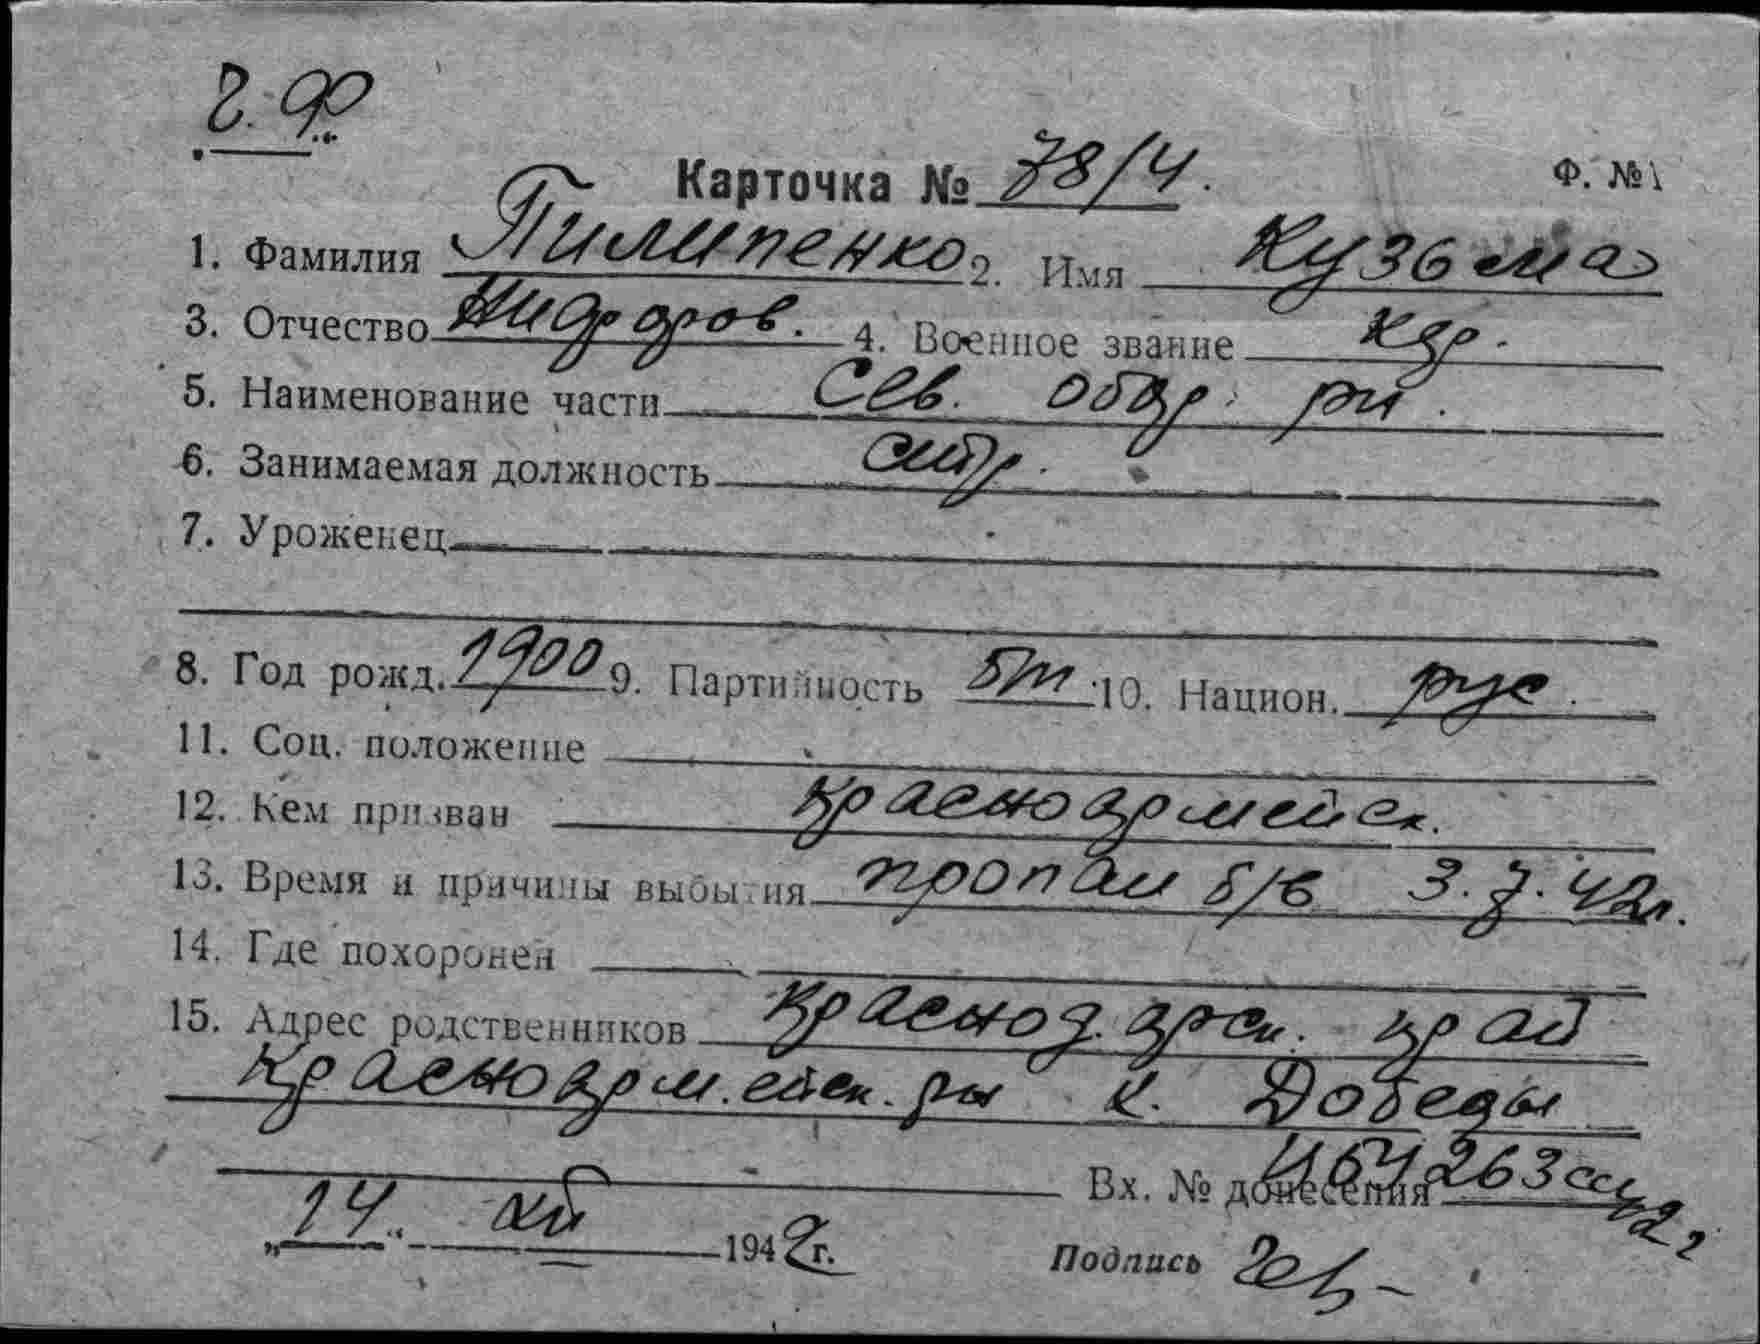 Ч.Ф.
Карточка № 78/4. Ф. №1
1. Фамилия Пилипенко 2. Имя Кузьма
3. Отчество Никифоров. 4. Военное звание кр.
5. Наименование части Сев. обор. рн.
6. Занимаемая должность
7. Уроженец
8. Год рожд. 1900 9. Партийность б/п 10. Национ. рус.
11. Соц. положение
12. Кем призван Красноармейск.
13. Время и причины выбытия пропал б/в 3.7.42г.
14. Где похоронен
15. Адрес родственников Краснодарск. край
Красноармейск. рн к. Победы
Вх. № донесения 263сс
„14“ 1942г. Подпись